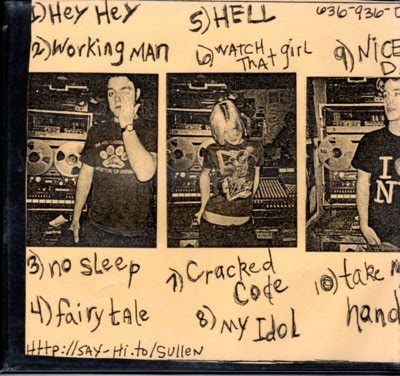 1) Hey Hey
2) Working MAN
3) no sleep
4) fairytale
5) HELL
6) WATCH
That girl
7) Cracked
Code
8) My Idol
636-936-
9) NICE
10) take
hand
I
N
http://say-hi.to/Sullen